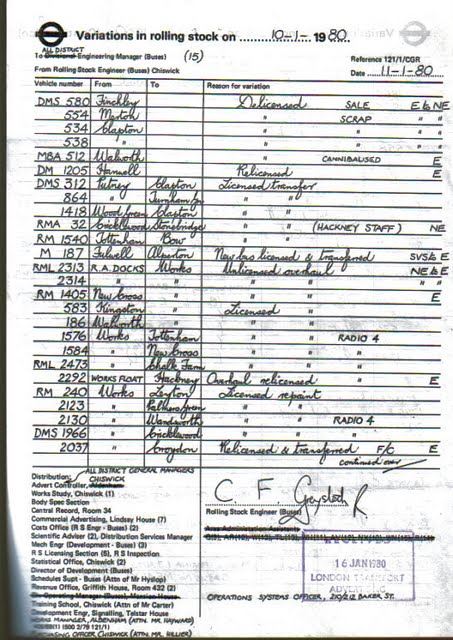 Variations in rolling stock on 10-1- 1980
ALL DISTRICT
To Divisional Engineering Manager (Buses) (15)
Reference 121/1/CGR
From Rolling Stock Engineer (Buses) Chiswick
Date 11-1-80
Vehicle number From To Reason for variation
DMS 580 Finchley Delicensed SALE E & NE
554 Merton " SCRAP " "
534 Clapton " " " "
538 " " " " "
MBA 512 Walworth " CANNIBALISED E
DM 1205 Hanwell Relicensed E
DMS 312 Putney Clapton Licensed transfer
864 " Turnham Gn " "
1418 Wood Green Clapton " "
RMA 32 Cricklewood Stonebridge " " (HACKNEY STAFF) NE
RM 1540 Tottenham Bow " "
M 187 Fulwell Alperton New bus licensed & transferred SVS & E
RML 2313 R.A. DOCKS Works Unlicensed overhaul NE & E
2314 " " " " " "
RM 1405 New Cross " " " E
583 Kingston " Licensed "
186 Walworth " " "
1576 Works Tottenham " " RADIO 4
1584 " New Cross " "
RML 2473 " Chalk Farm " "
2292 WORKS FLOAT Hackney Overhaul relicensed E
RM 240 Works Leyton Licensed repaint
2123 " Palmers Green " "
2130 " Wandsworth " " RADIO 4
DMS 1966 " Cricklewood " "
2037 " Croydon Relicensed & transferred F/C E
continued over
ALL DISTRICT GENERAL MANAGERS
Distribution: CHISWICK
Advert Controller,
Works Study, Chiswick (1)
Body Spec Section
Central Record, Room 34
Commercial Advertising, Lindsay House (7)
Costs Office (R S Engr - Buses) (2)
Scientific Adviser (2), Distribution Services Manager
Mech Engr (Development - Buses) (3)
R S Licensing Section (5), R S Inspection
Statistical Office, Chiswick (2)
Director of Development (Buses)
Schedules Supt - Buses (Attn of Mr Hyslop)
Revenue Office, Griffith House, Room 432 (2)
Div Operating Manager (Buses), Mansion House
Training School, Chiswick (Attn of Mr Carter)
Development Engr, Signalling, Telstar House
WORKS MANAGER, ALDENHAM (ATTN. MR. HAYWARD)
LICENSING OFFICER CHISWICK (ATTN. MR. HILLIER)
Rolling Stock Engineer (Buses)
Area Administration Assistants
RECEIVED
16 JAN 1980
LONDON TRANSPORT
OPERATIONS SYSTEMS OFFICER, 210/212 BAKER ST.